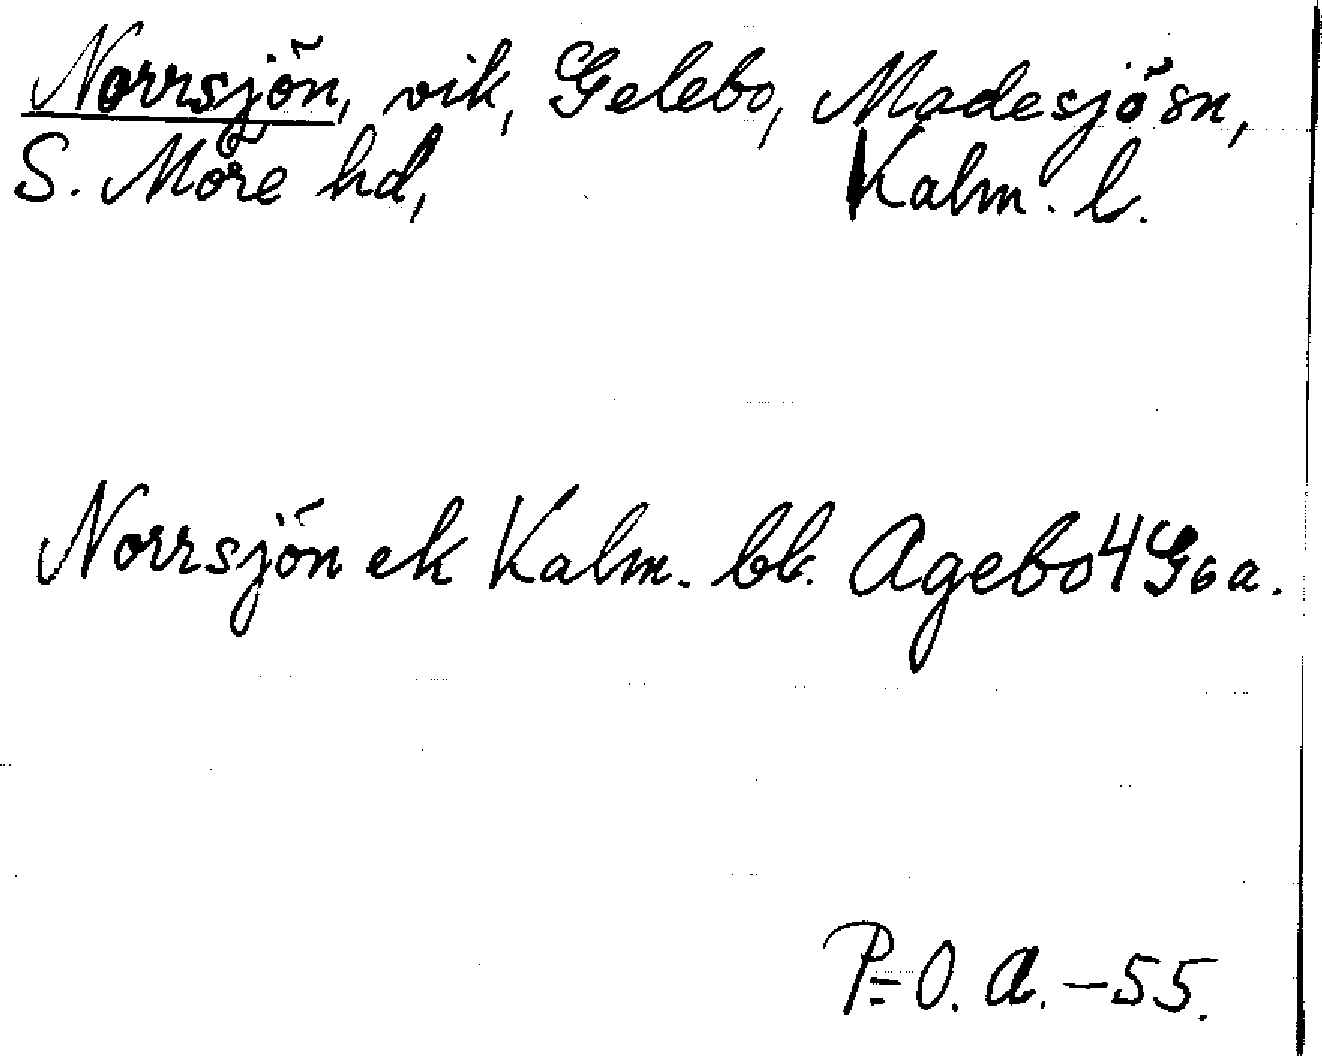 Norrsjön, vik, Gelebo, Madesjö sn,
S. Möre hd, Kalm. l.
Norrsjön ek Kalm. bl. Agebo 4 G 6 a.
P=O. A. – 55.